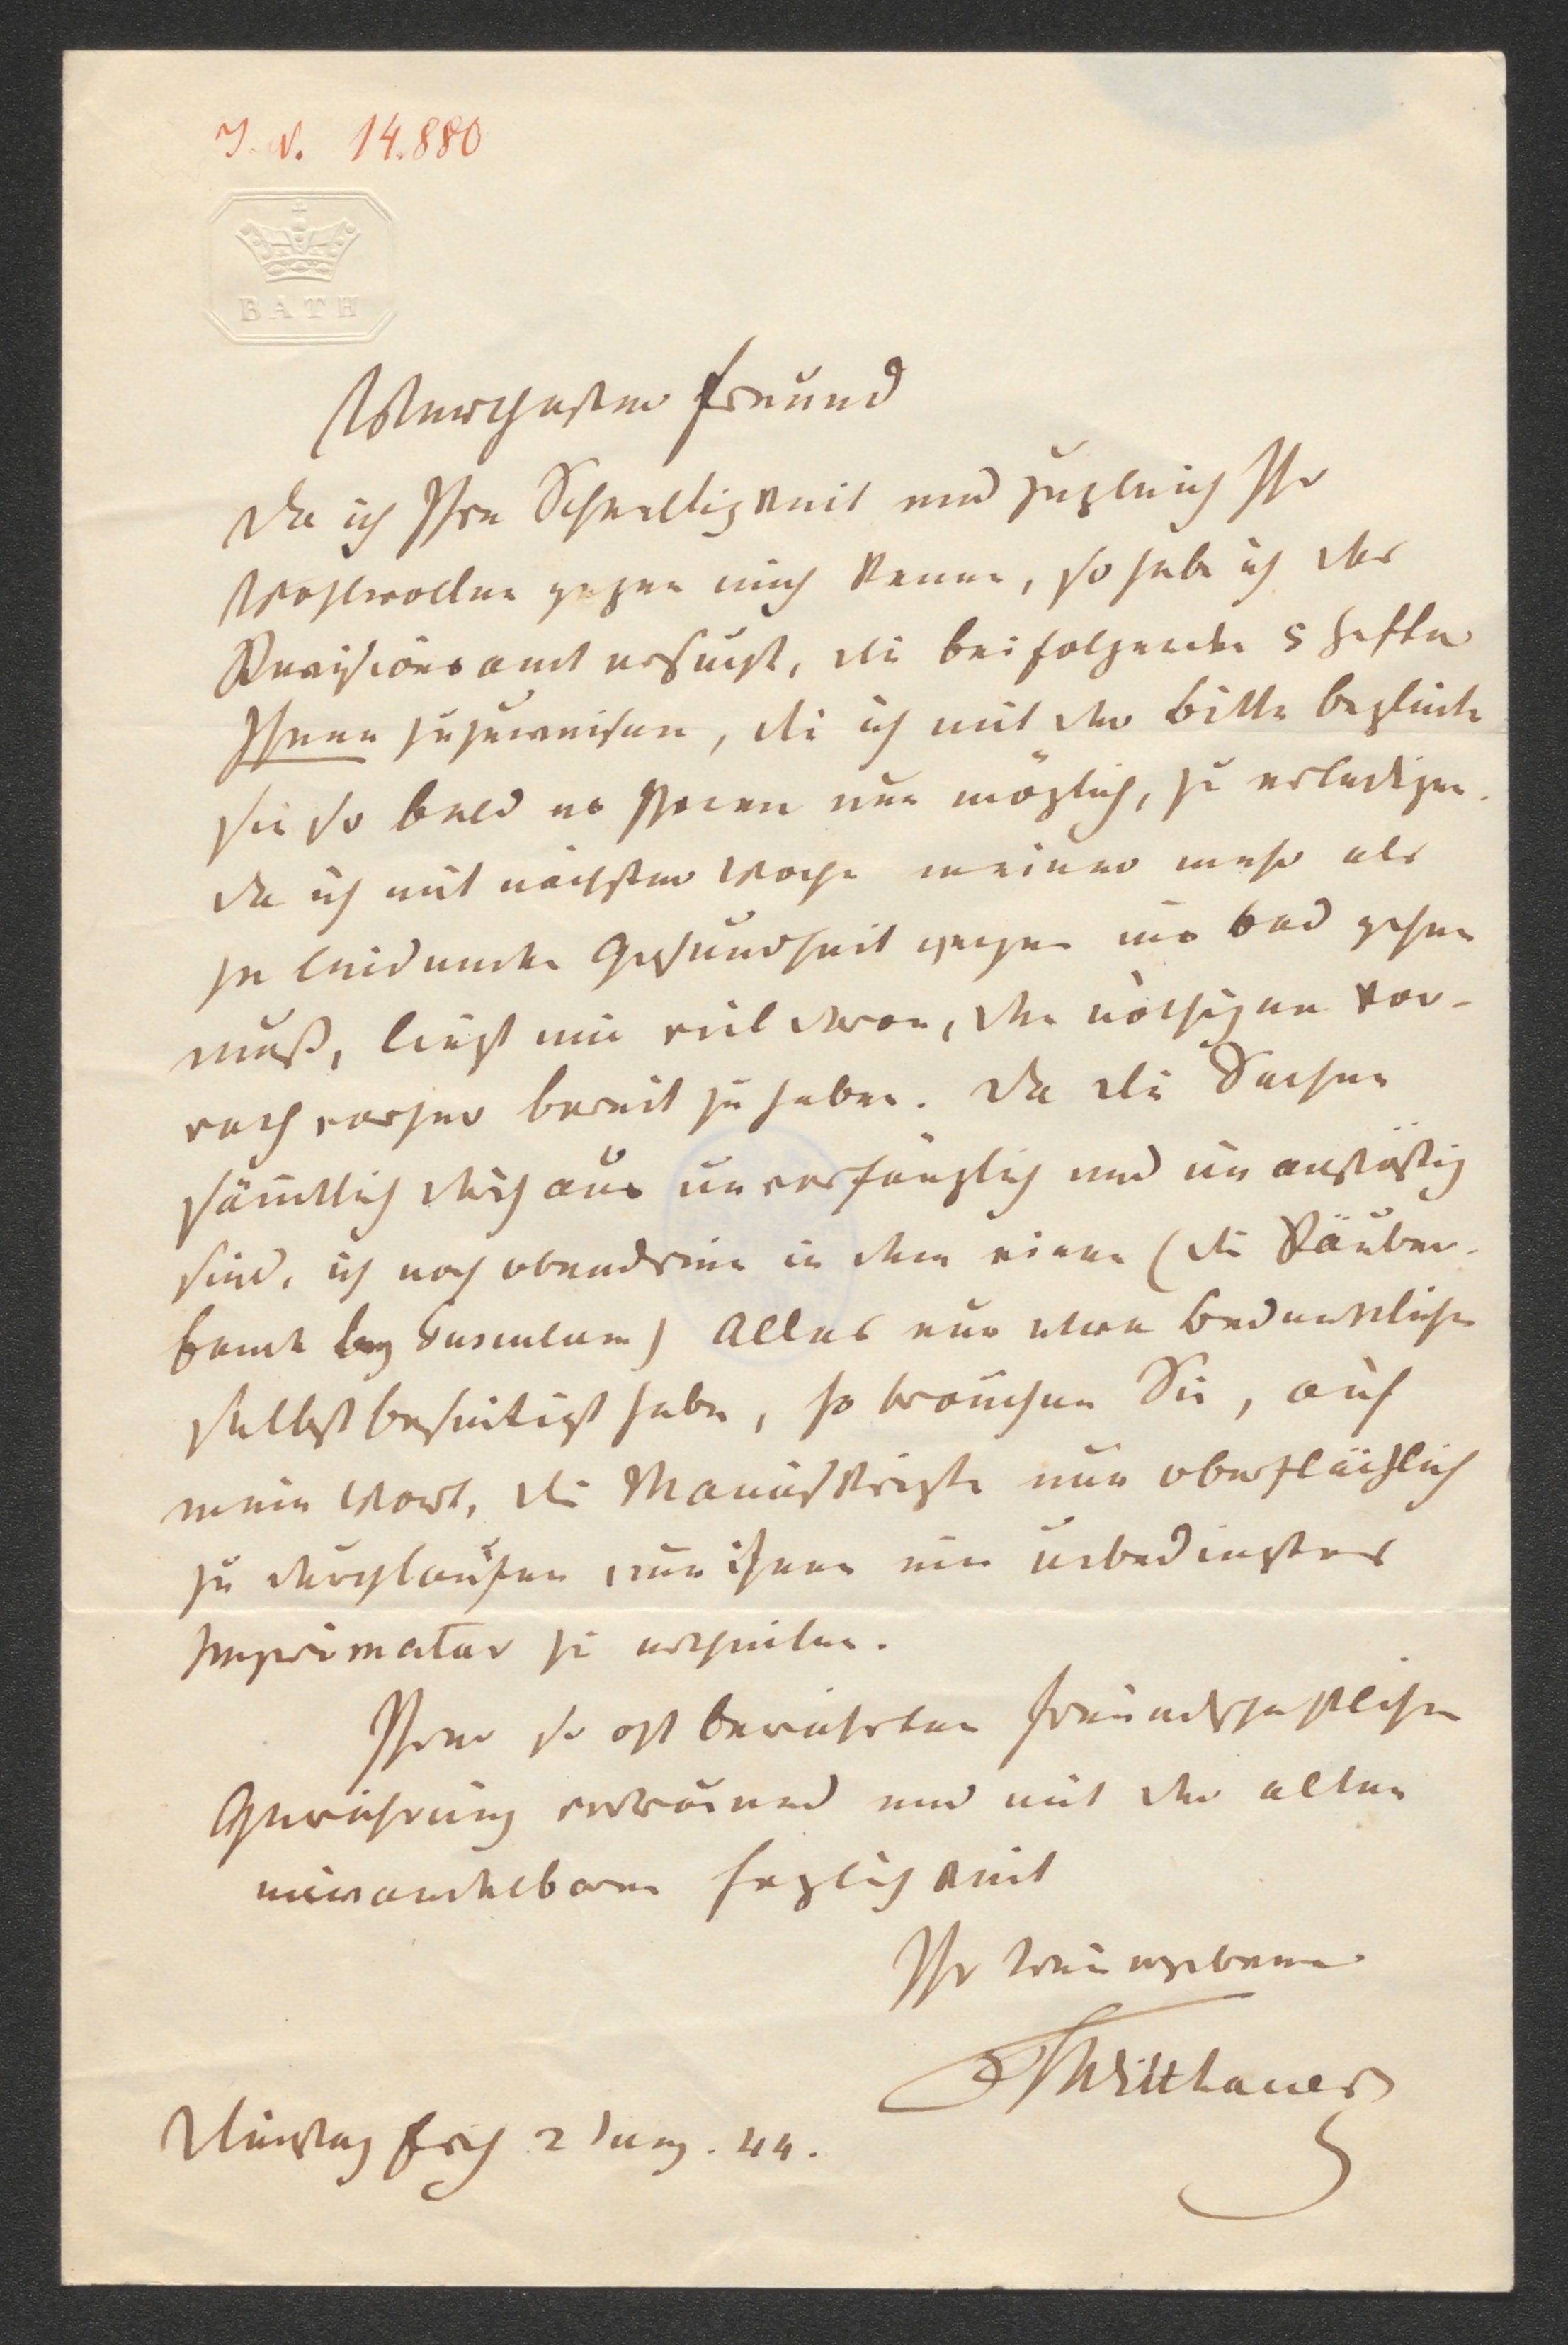 I. N. 14.880
BATH
Werthester Freund
Da ich Ihre Schnelligkeit und zugleich Ihr
Wohlwollen gegen mich kenne, so habe ich das
Revisionsamt ersucht, die beifolgenden 5 Hefte
Ihnen zuzuweisen, die ich mit der Bitte begleite
sie so bald es Ihnen nur möglich, zu erledigen.
Da ich mit nächster Woche meiner mehr als
je leidenden Gesundheit wegen ins Bad gehen
muß, liegt mir viel daran, den nöthigen Vor-
rath vorher bereit zu haben. Da die Sachen
sämtlich durchaus unverfänglich und unanstößig
sind, ich noch obendrein in dem einen (die Räuber-
bande bey Tusculum) Alles nur etwa Bedenkliche
selbst beseitigt habe, so brauchen Sie, auf
mein Wort, die Manuskripte nur oberflächlich
zu durchlaufen, um ihnen ein unbedingtes
Imprimatur zu ertheilen.
Ihrer so oft bewährten freundschaftlichen
Gewährung vertrauend und mit der alten
unwandelbaren Herzlichkeit
Ihr treu ergebener
Witthauer
Dienstag früh 2 . 44.